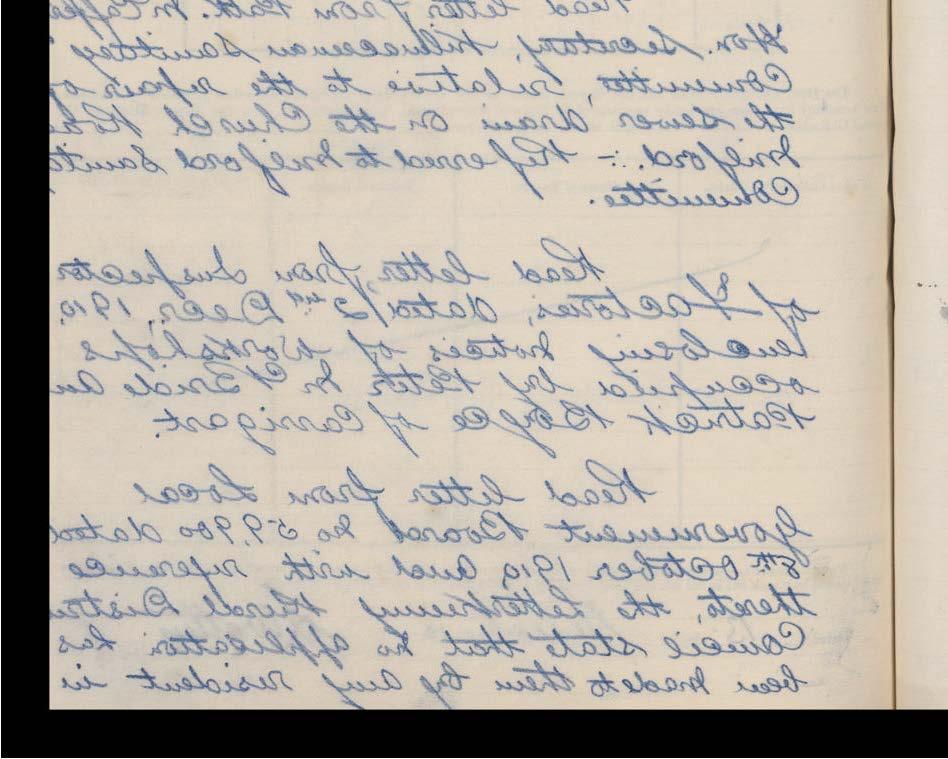 Read letter from Patk. McCaffer
Hon. Secretary, Kilmacrenan Sanitary
Committee, relative to the repair of
the sewer drain on the Church Road
Milford :- Referred to Milford Sanita
Committee.
Read letter, from Inspector
of Factories, dated 2nd Decr. 1910,
enclosing notices of Workshops
occupied by Peter McBride an
Patrick Boyce of Carrigart.
Read letter from Local
Government Board No 59,900 dated
8th October 1910, and with reference
thereto, the Letterkenny Rural Distri
Council state that no application has
been made to them by any resident in